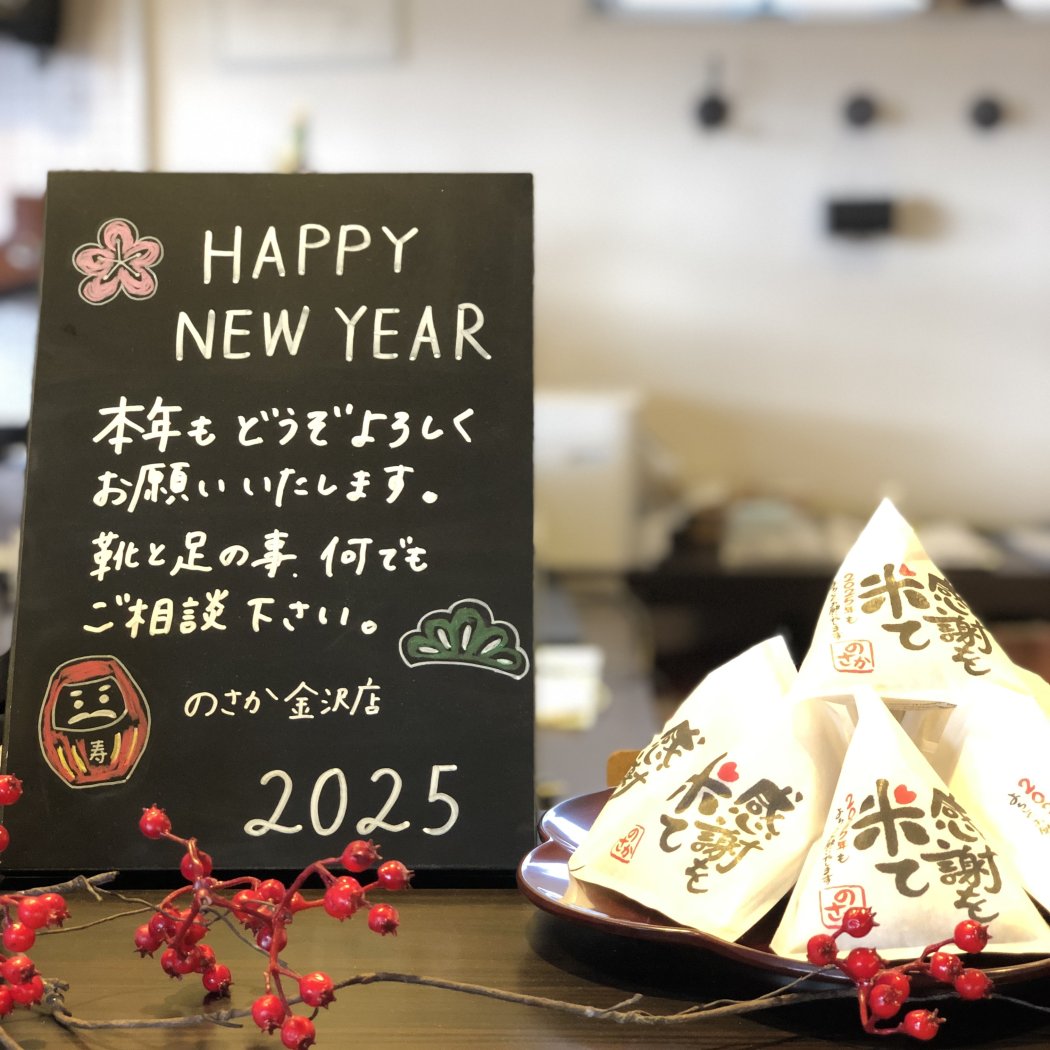 HAPPY
NEW YEAR
本年もどうぞよろしく
お願いいたします。
靴と足の事、何でも
ご相談下さい。
のさか 金沢店
寿
2025
感謝を
米て
2025年も
のさか
感謝も
米て
のさか
感謝
感謝も
米て
2025年も
のさか